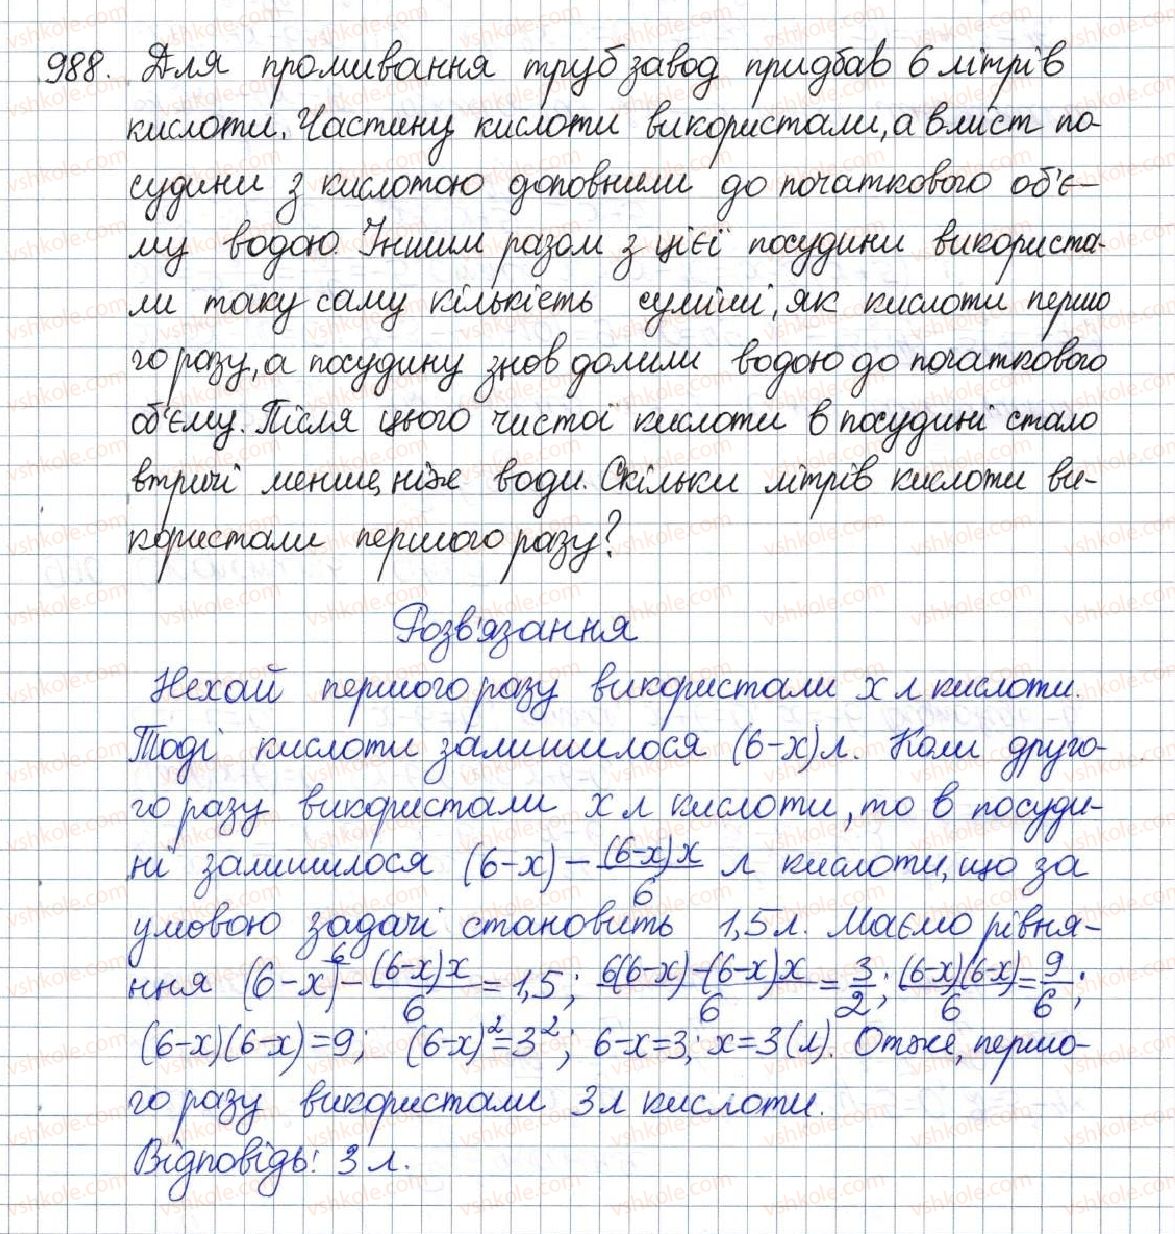 988. Для промивання труб завод придбав 6 літрів
кислоти. Частину кислоти використали, а вміст по-
судини з кислотою доповнили до початкового об'є-
му водою. Іншим разом з цієї посудини використа-
ли таку саму кількість суміші, як кислоти першо
го разу, а посудину знов долили водою до початкового
об'єму. Після цього чистої кислоти в посудині стало
втричі менше, ніж води. Скільки літрів кислоти ви-
користали першого разу?
Розв'язання
Нехай першого разу використали x л кислоти.
Тоді кислоти залишилося (6-x) л. Коли друго-
го разу використали x л кислоти, то в посуди-
ні залишилося (6-x) - (6-x)x/6 л кислоти, що за
умовою задачі становить 1,5 л. Маємо рівня-
ння (6-x)^6 - (6-x)x/6 = 1,5; 6(6-x)-(6-x)x/6 = 3/2; (6-x)(6-x)/6 = 9/6;
(6-x)(6-x)=9; (6-x)²=3²; 6-x=3; x=3 (л). Отже, першо-
го разу використали 3 л кислоти.
Відповідь: 3 л.
vshkole.com